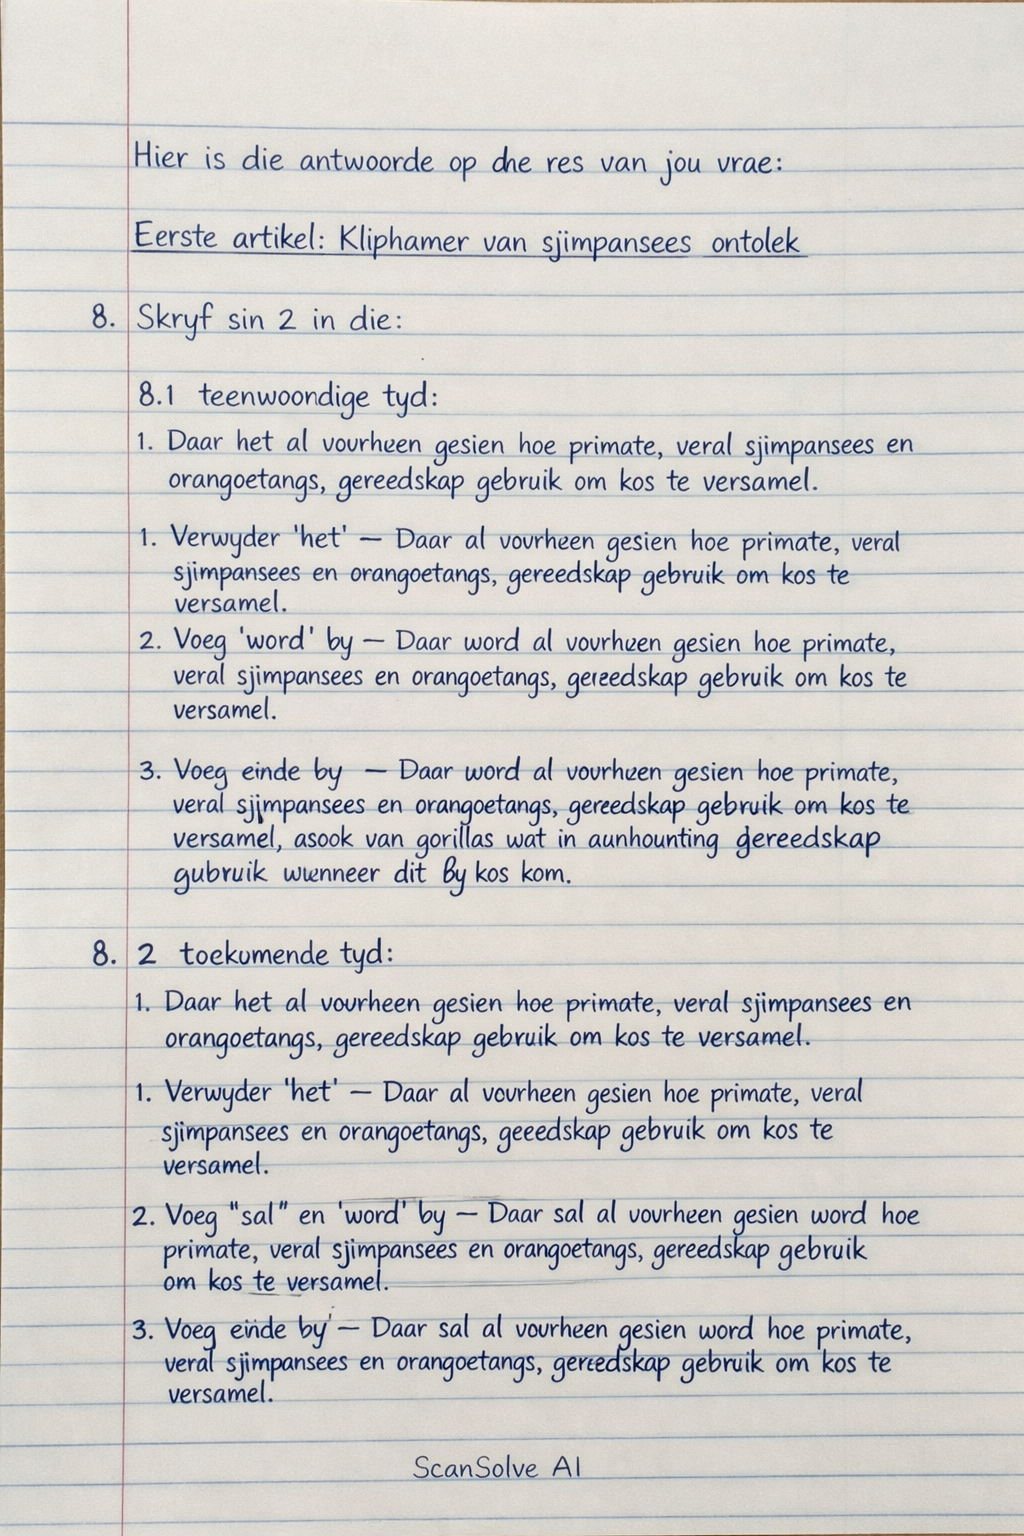 Hier is die antwoorde op dhe res van jou vrae:
Eerste artikel: Kliphamer van sjimpansees ontolek
8. Skryf sin 2 in die:
8.1 teenwoondige tyd:
1. Daar het al vourheen gesien hoe primate, veral sjimpansees en
orangoetangs, gereedskap gebruik om kos te versamel.
1. Verwyder 'het' – Daar al vourheen gesien hoe primate, veral
sjimpansees en orangoetangs, gereedskap gebruik om kos te
versamel.
2. Voeg 'word' by – Daar word al vourheen gesien hoe primate,
veral sjimpansees en orangoetangs, gereedskap gebruik om kos te
versamel.
3. Voeg einde by – Daar word al vourheen gesien hoe primate,
veral sjimpansees en orangoetangs, gereedskap gebruik om kos te
versamel, asook van gorillas wat in aunhounting gereedskap
gubruik wunneer dit By kos kom.
8. 2 toekumende tyd:
1. Daar het al vourheen gesien hoe primate, veral sjimpansees en
orangoetangs, gereedskap gebruik om kos te versamel.
1. Verwyder 'het' – Daar al vourheen gesien hoe primate, veral
sjimpansees en orangoetangs, geeedskap gebruik om kos te
versamel.
2. Voeg "sal" en 'word' by – Daar sal al vourheen gesien word hoe
primate, veral sjimpansees en orangoetangs, gereedskap gebruik
om kos te versamel.
3. Voeg einde by – Daar sal al vourheen gesien word hoe primate,
veral sjimpansees en orangoetangs, gereedskap gebruik om kos te
versamel.
ScanSolve AI